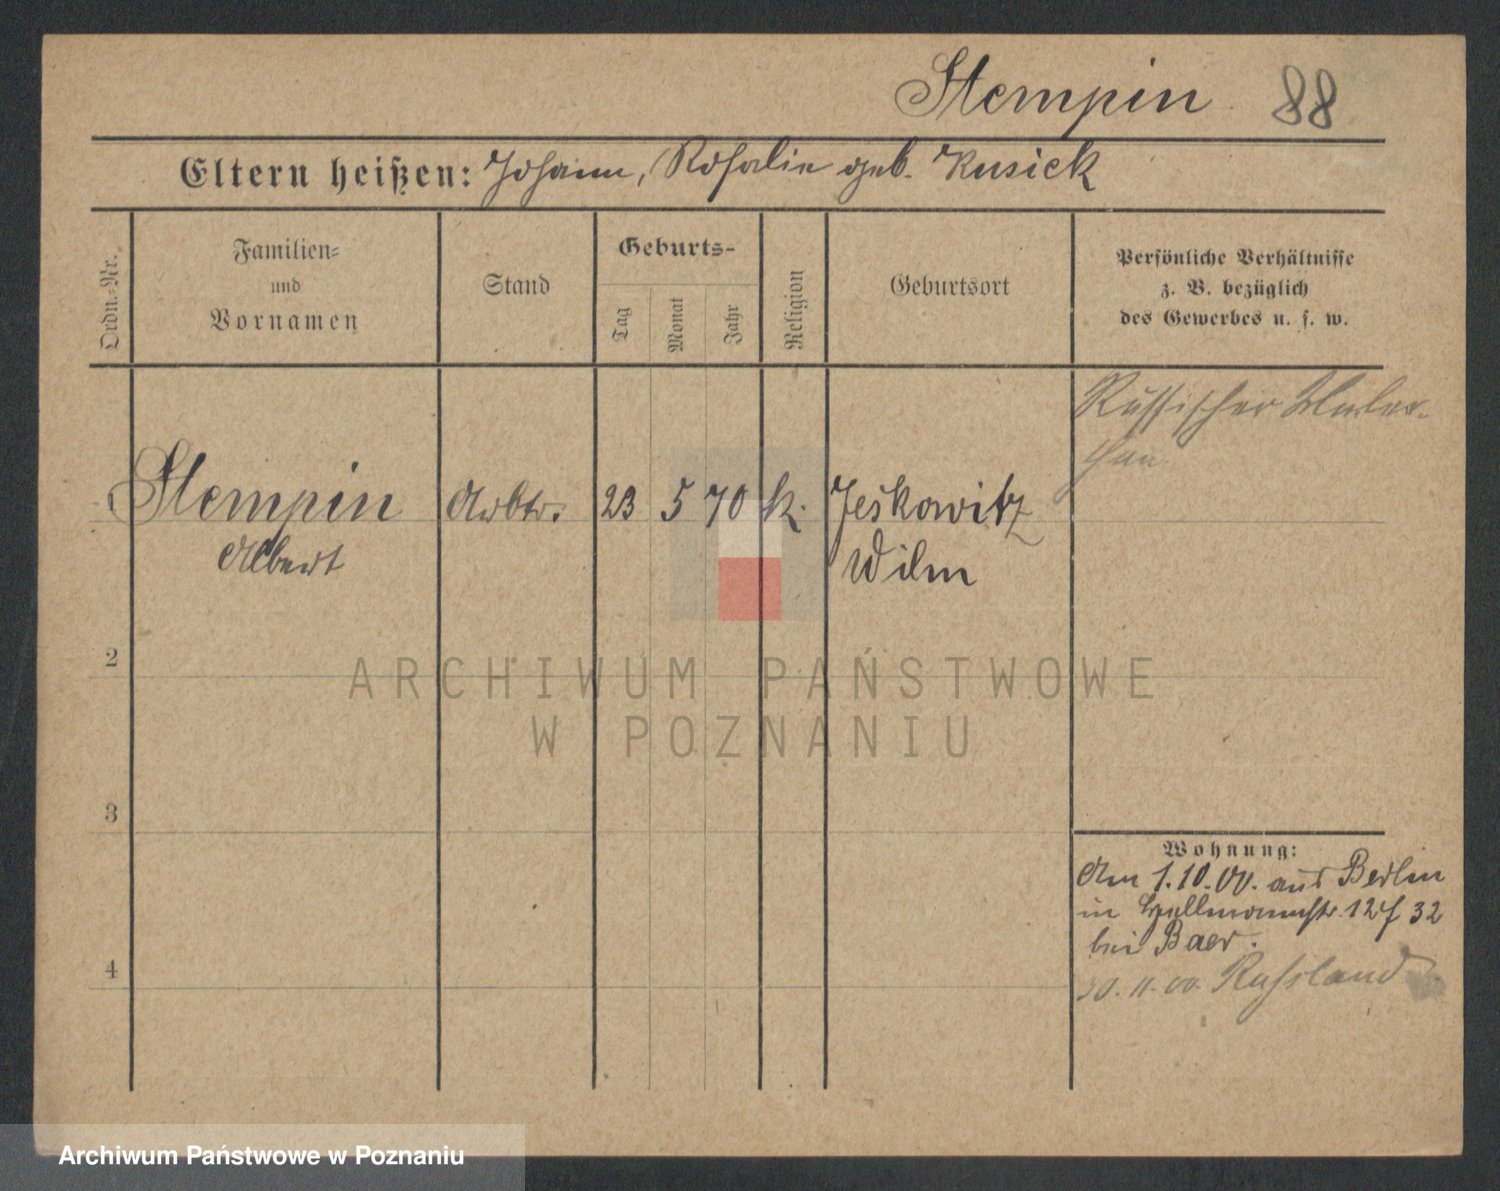 Stempin 88
Eltern heißen: Johann, Rosalie geb. Kusick
Ordn.-Nr.
Familien-
und
Vornamen
Stand
Geburts-
Tag
Monat
Jahr
Religion
Geburtsort
Persönliche Verhältnisse
z. B. bezüglich
des Gewerbes u. s. w.
Russischer Unter-
than
Stempin Arbtr. 23 5 70 k. Jeskowitz
Albert Wilm
2
3
4
Wohnung:
Am 1.10.00. aus Berlin
in 32
bei Baer.
30.11.00. Russland
ARCHIWUM PAŃSTWOWE
W POZNANIU
Archiwum Państwowe w Poznaniu